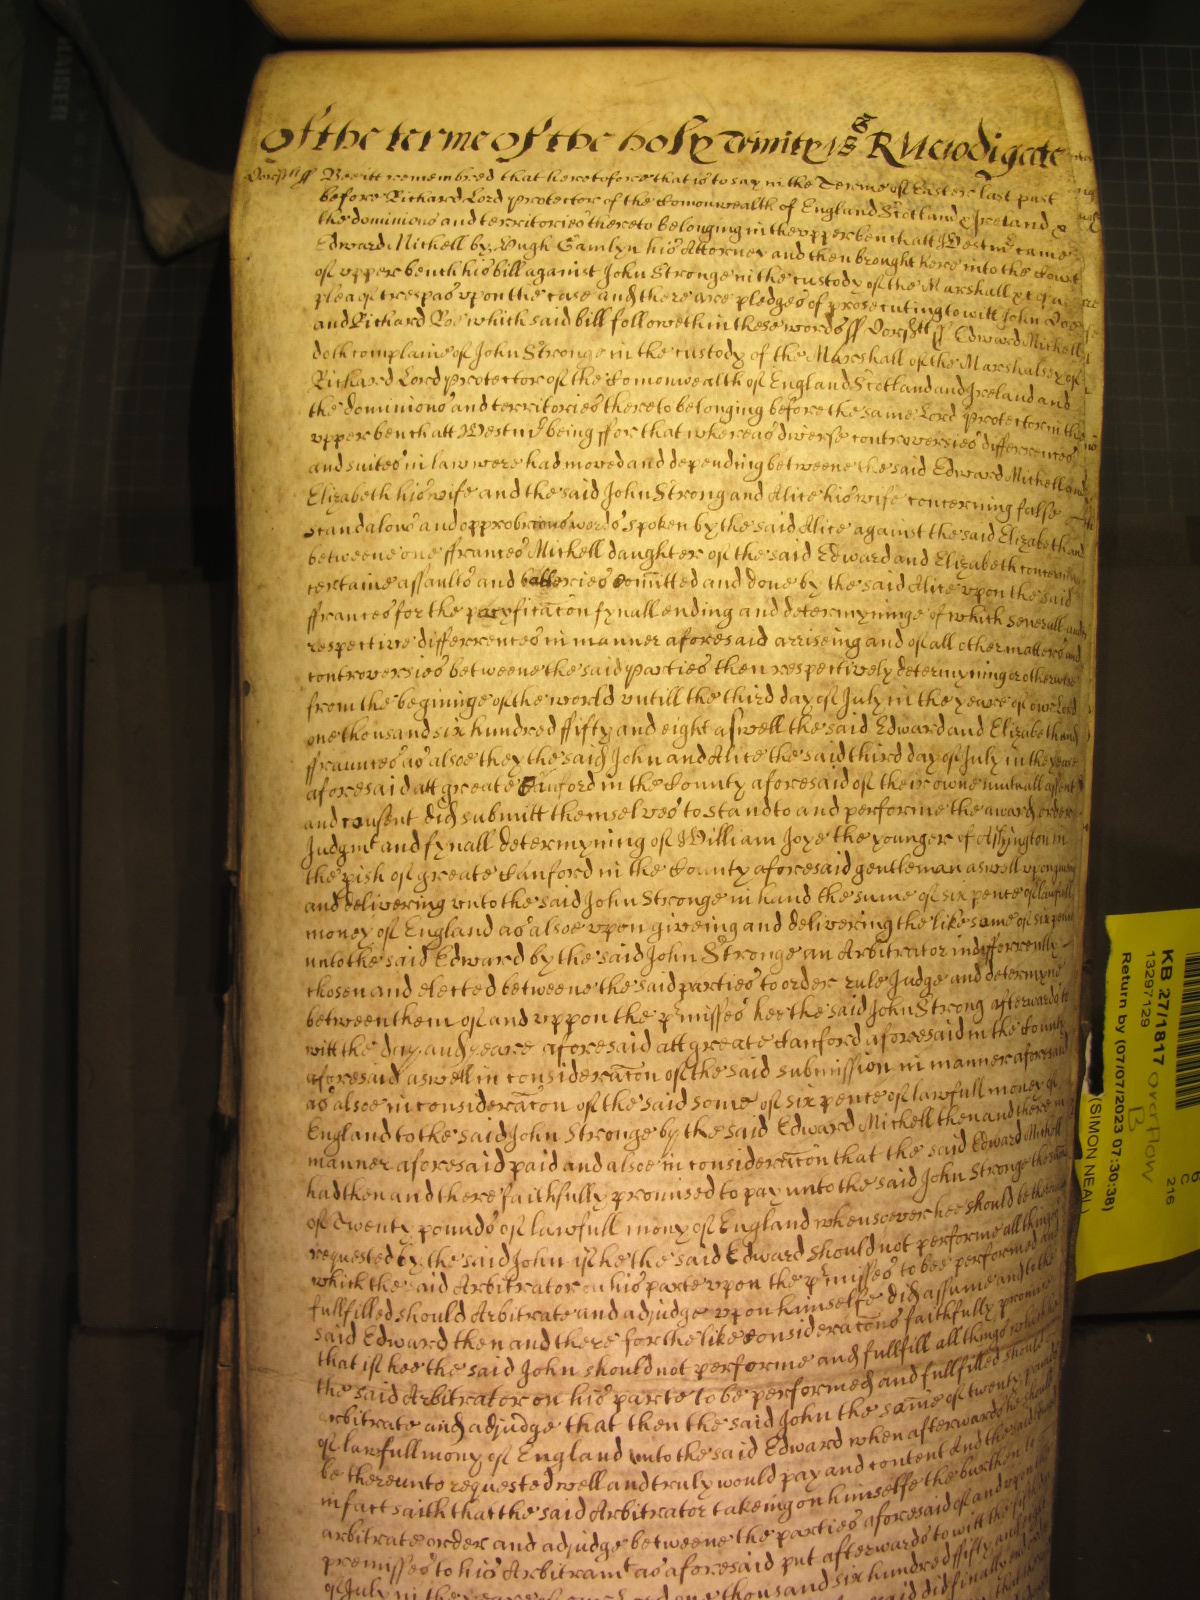 Of the terme of the holy Trinity 1659 R Newdigate
Dorst ss Bee itt remembred that heretofore that is to say in the Terme of Easter last past
before Richard Lord Protector of the Comonwealth of England Scotland & Ireland &
the dominions and territories thereto belonging in the vpper bench att Westmr came
Edward Michell by Hugh Gamlyn his Attorney and then brought here into the Court
of vpper bench his bill against John Stronge in the custody of the Marshall &c of a
plea of trespas vpon the case and there are pledges of prosecuting to witt John Doe
and Richard Roe which said bill followeth in these words ss Dorst ss Edward Michell
doth complaine of John Stronge in the custody of the Marshall of the Marshalsey of
Richard Lord Protector of the Comonwealth of England Scotland and Ireland and
the dominions and territories thereto belonging before the same Lord Protector in the
vpper bench att Westmr being ffor that whereas diverse controversies differrences
and suites in law were had moved and depending betweene the said Edward Michell and
Elizabeth his wife and the said John Strong and Alice his wife concerning false
scandalous and opprobrious words spoken by the said Alice against the said Elizabeth and
betweene one ffrances Michell daughter of the said Edward and Elizabeth concerning
certaine assaults and batteries comitted and done by the said Alice vpon the said
ffrances for the pacyficacon fynall ending and determyninge of which severall and
respective differrences in manner aforesaid ariseing and of all other matters and
controversies betweene the said parties then respectively determyning or otherwise
from the begininge of the world vntill the third day of July in the yeare of owr Lord
one thousand six hundred ffifty and eight aswell the said Edward and Elizabeth and
ffraunces as alsoe they the said John and Alice the said third day of July in the yeare
aforesaid att greate Canford in the County aforesaid of their owne mutuall assent
and consent did submitt themselves to stand to and performe the award order
Judgmt and fynall determyning of William Joye the younger of Ashington in
the pish of greate Canford in the County aforesaid gentleman aswell vpon
and delivering vnto the said John Stronge in hand the sume of six pence of lawfull
money of England as alsoe vpon giveing and delivering the like some of six pence
unto the said Edward by the said John Stronge an Arbitrator indifferrently
chosen and elected betweene the said parties to order rule Judge and determyne
between them of and vppon the prmisses hee the said John Strong afterwards to
witt the day and yeare aforesaid att greate Canford aforesaid in the County
aforesaid aswell in consideracon of the said submission in manner aforesaid
as alsoe in consideracon of the said some of six pence of lawfull money of
England to the said John Stronge by the said Edward Michell then and there in
manner aforesaid paid and alsoe in consideracon that the said Edward Michell
had then and there faithfully promised to pay unto the said John Stronge the some
of Twenty pounds of lawfull mony of England whensoever hee should be thereunto
requested by the said John if he the said Edward should not performe all things
which the said Arbitrator on his parte vpon the prmisses to bee performed and
fullfilled should Arbitrate and adjudge vpon himselfe did assume and to the
said Edward then and there for the like consideracons faithfully promise
that if hee the said John should not performe and fullfill all things which
the said Arbitrator on his parte to be performed and fullfilled should
arbitrate and adjudge that then the said John the same of twenty pounds
of lawfull mony of England unto the said Edward when afterwards he should
be thereunto requested well and truly would pay and content And the said Edward
in fact saith that the said Arbitrator takeing on himselfe the burthen to
arbitrate order and adjudge betweene the parties aforesaid of and vpon the
premisses to his Arbitramt as aforesaid put afterwards to witt the
of July in the yeare of owr Lord one thousand six hundred fifty and eight
said did finally
KB 27/1817
13297129
Return by (07/07/2023 07:30:38)
(SIMON NEAL)
Overflow
B
C
216